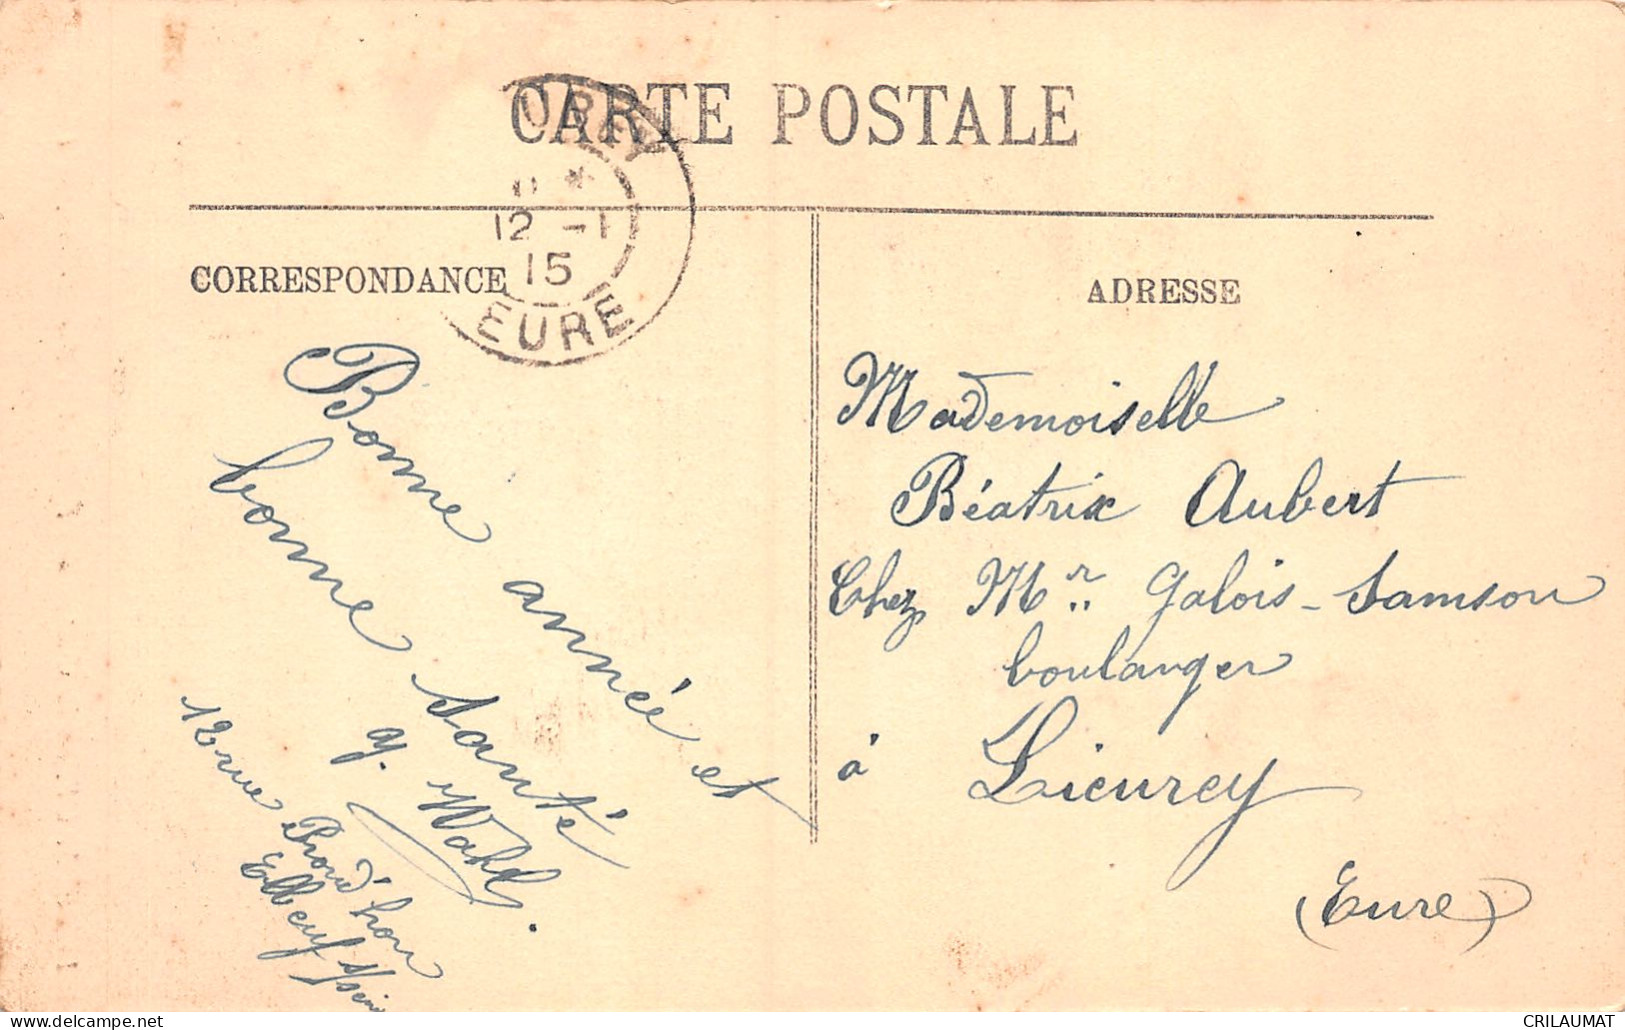 CARTE POSTALE
UREY
*
12 -1
15
EURE
CORRESPONDANCE
Bonne année et
bonne santé
G. Wahl.
12 rue Proud'hon
Elbeuf s/seine
ADRESSE
Mademoiselle
Béatrix Aubert
Chez Mr. Galois-Samson
boulanger
à Lieurey
(Eure)
CRILAUMAT